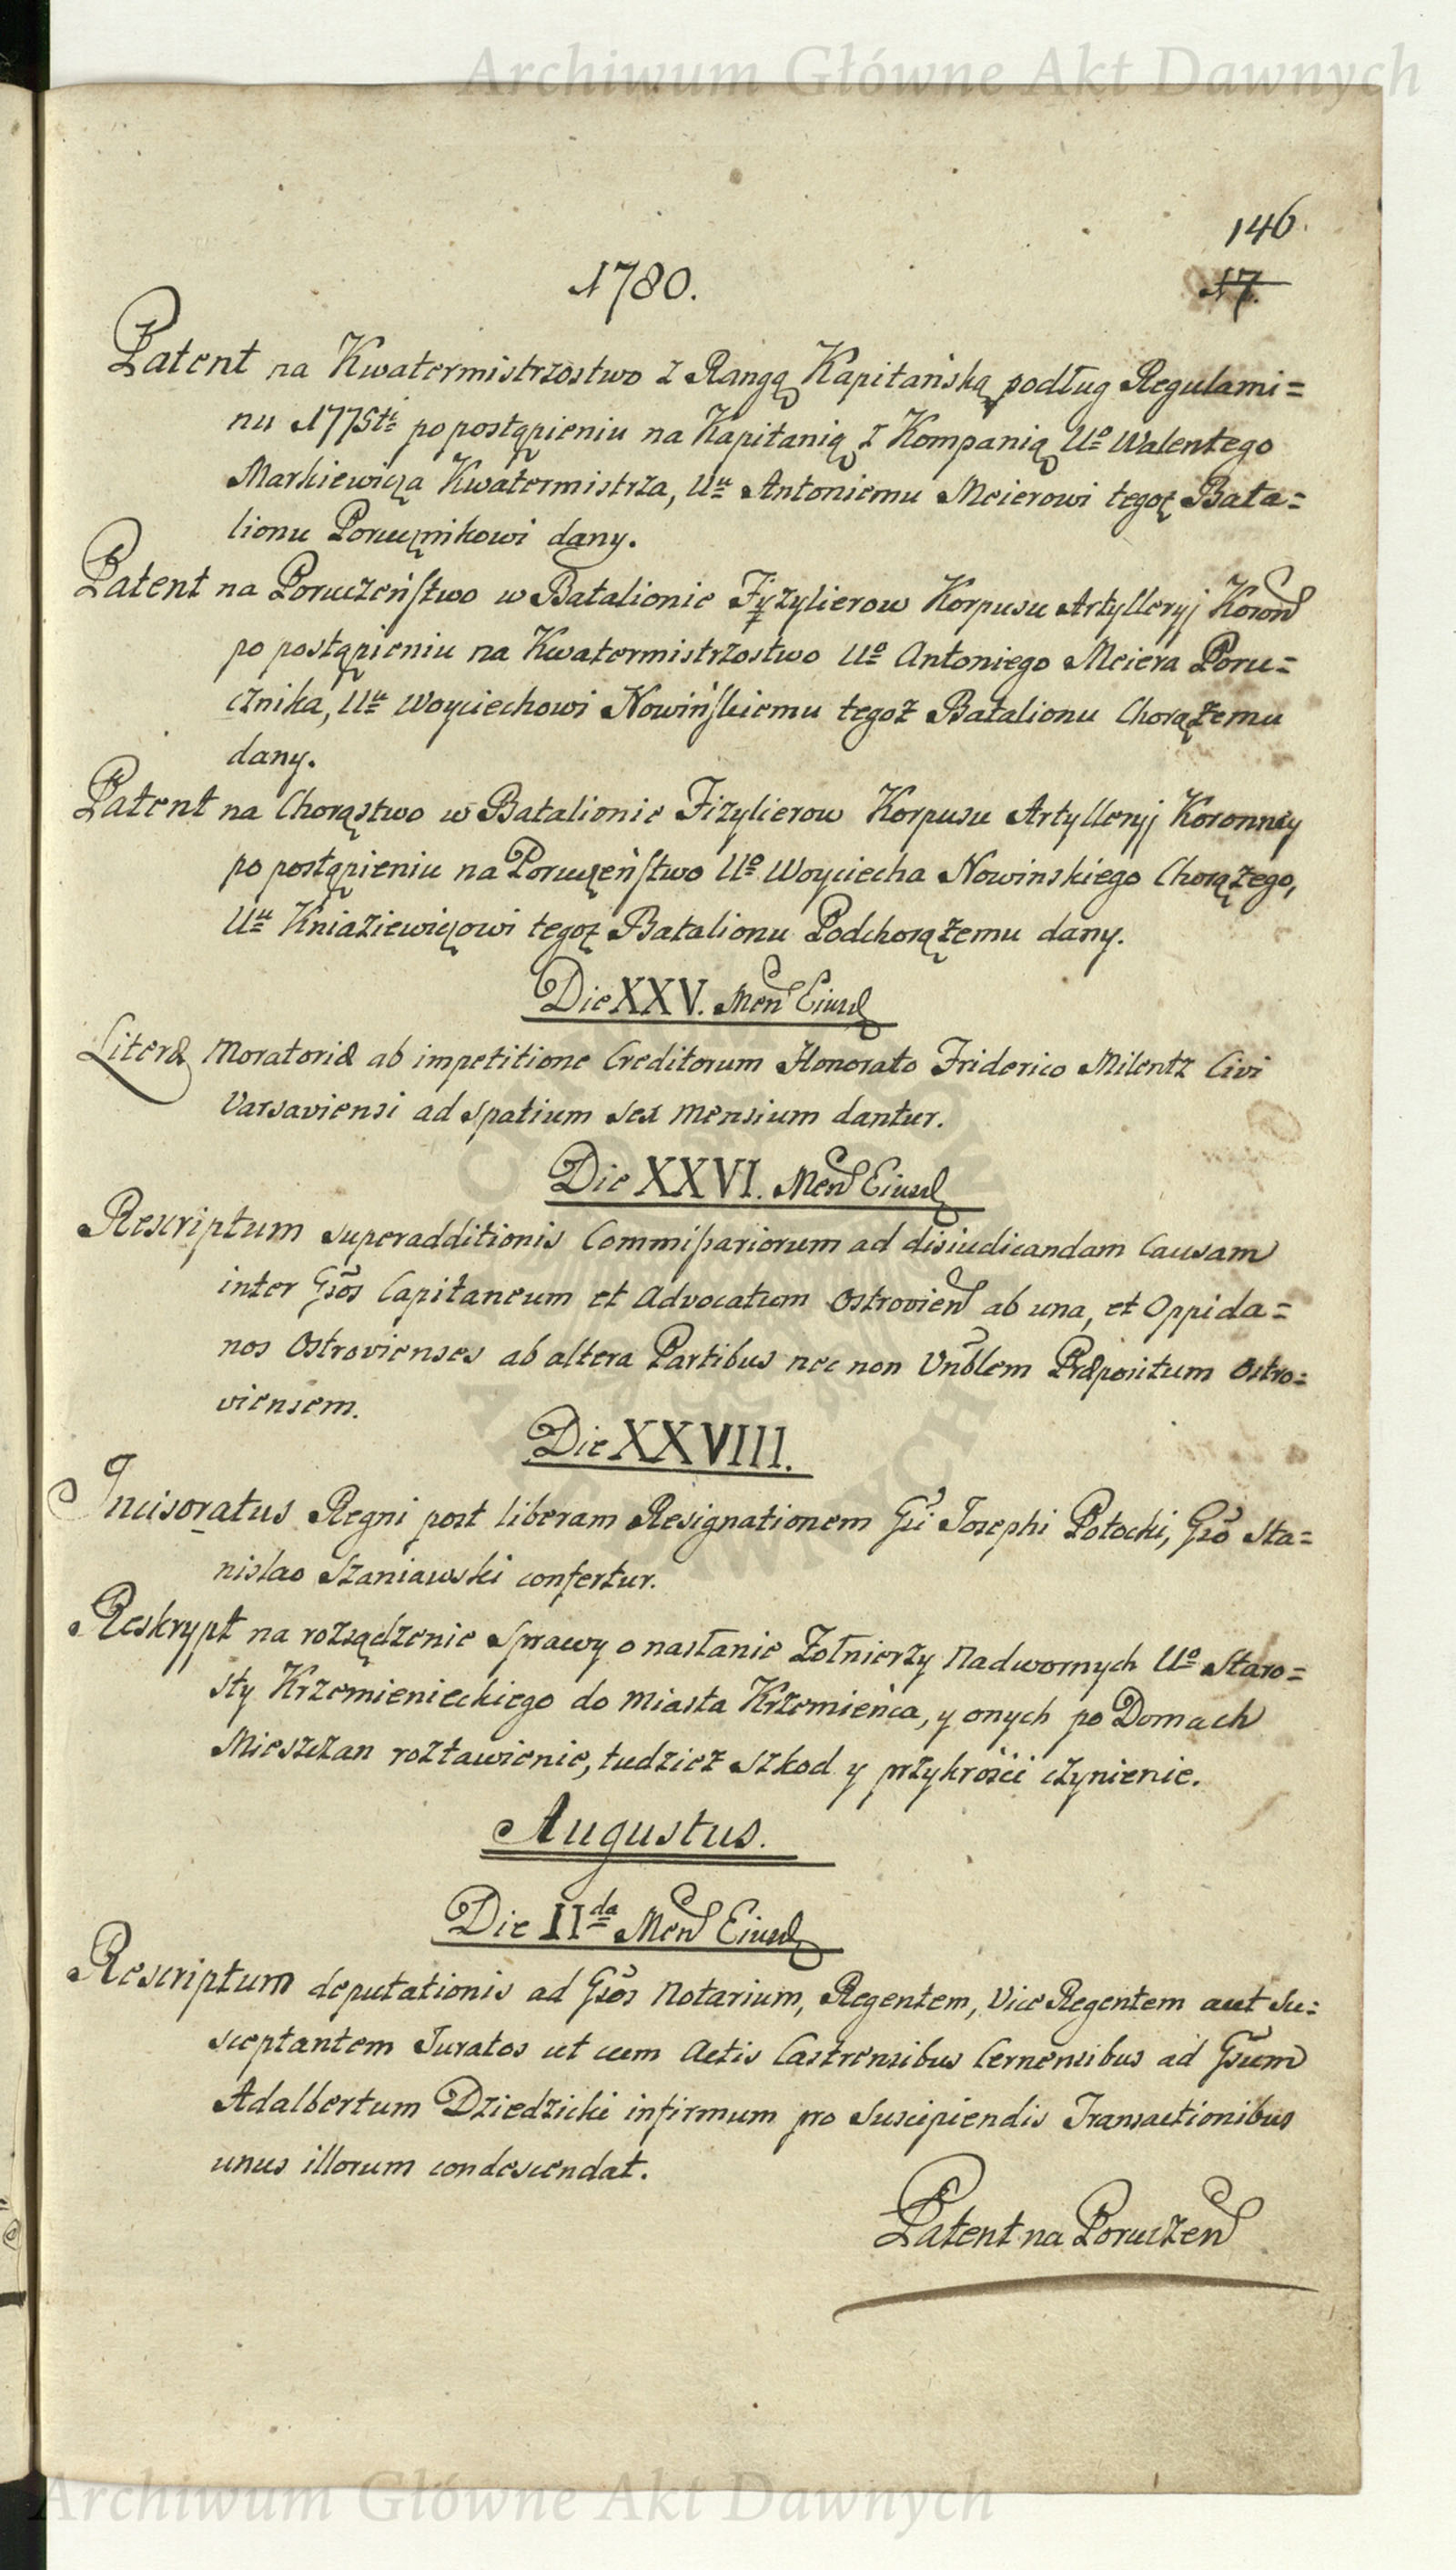 Archiwum Główne Akt Dawnych
146.
1780.
17.
Patent na Kwatermistrzostwo z Rangą Kapitańską podług Regulami=
nu 1775ti po postąpieniu na Kapitanią z Kompanią Uo Walentego
Markiewicza Kwatermistrza, Uu Antoniemu Meierowi tegoż Bata=
lionu Porucznikowi dany.
Patent na Poruczeństwo w Batalionie Fyzylierow Korpusu Artylleryj Koron
po postąpieniu na Kwatermistrzostwo Uo Antoniego Meiera Poru=
cznika, Uu Woyciechowi Nowińskiemu tegoż Batalionu Chorążemu
dany.
Patent na Chorąstwo w Batalionie Fizylierow Korpusu Artylleryj Koronney
po postąpieniu na Poruczeństwo Uo Woyciecha Nowinskiego Chorążego,
Uu Kniaziewiczowi tegoż Batalionu Podchorążemu dany.
Die XXV. Men Eiusd
Literæ Moratoriæ ab impetitione Creditorum Honorato Friderico Milentz Civi
Varsaviensi ad spatium sex mensium dantur.
Die XXVI. Men Eiusd
Rescriptum superadditionis Commissariorum ad disiudicandam Causam
inter Gsos Capitaneum et Advocatum Ostrovien ab una, et Oppida=
nos Ostrovienses ab altera Partibus nec non Vnblem Præpositum Ostro=
viensem.
Die XXVIII.
Incisoratus Regni post liberam Resignationem Gsi Josephi Potocki, Gso Sta=
nislao Szaniawski confertur.
Reskrypt na rozsądzenie Sprawy o nasłanie Żołnierzy Nadwornych Uo Staro=
sty Krzemienieckiego do Miasta Krzemieńca, y onych po Domach
Mieszczan rozstawienie, tudzież szkod y przykrości czynienie.
Augustus.
Die IIda Men Eiusd
Rescriptum deputationis ad Gsos Notarium, Regentem, Vice Regentem aut Su=
sceptantem Juratos ut cum Actis Castrensibus Cernensibus ad Gsum
Adalbertum Dziedzicki infirmum pro Suscipiendis Transactionibus
unus illorum condescendat.
Patent na Poruczen
Archiwum Główne Akt Dawnych